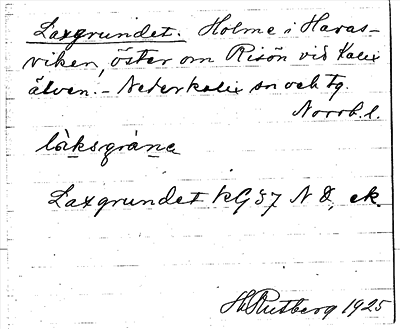 Laxgrundet. Holme i Havas-
viken, öster om Risön vid Kalix
älven. - Nederkalix sn och tg.
Norrb. l.
Laxgrundet kG 57 N O, ek.
H Rutberg 1925